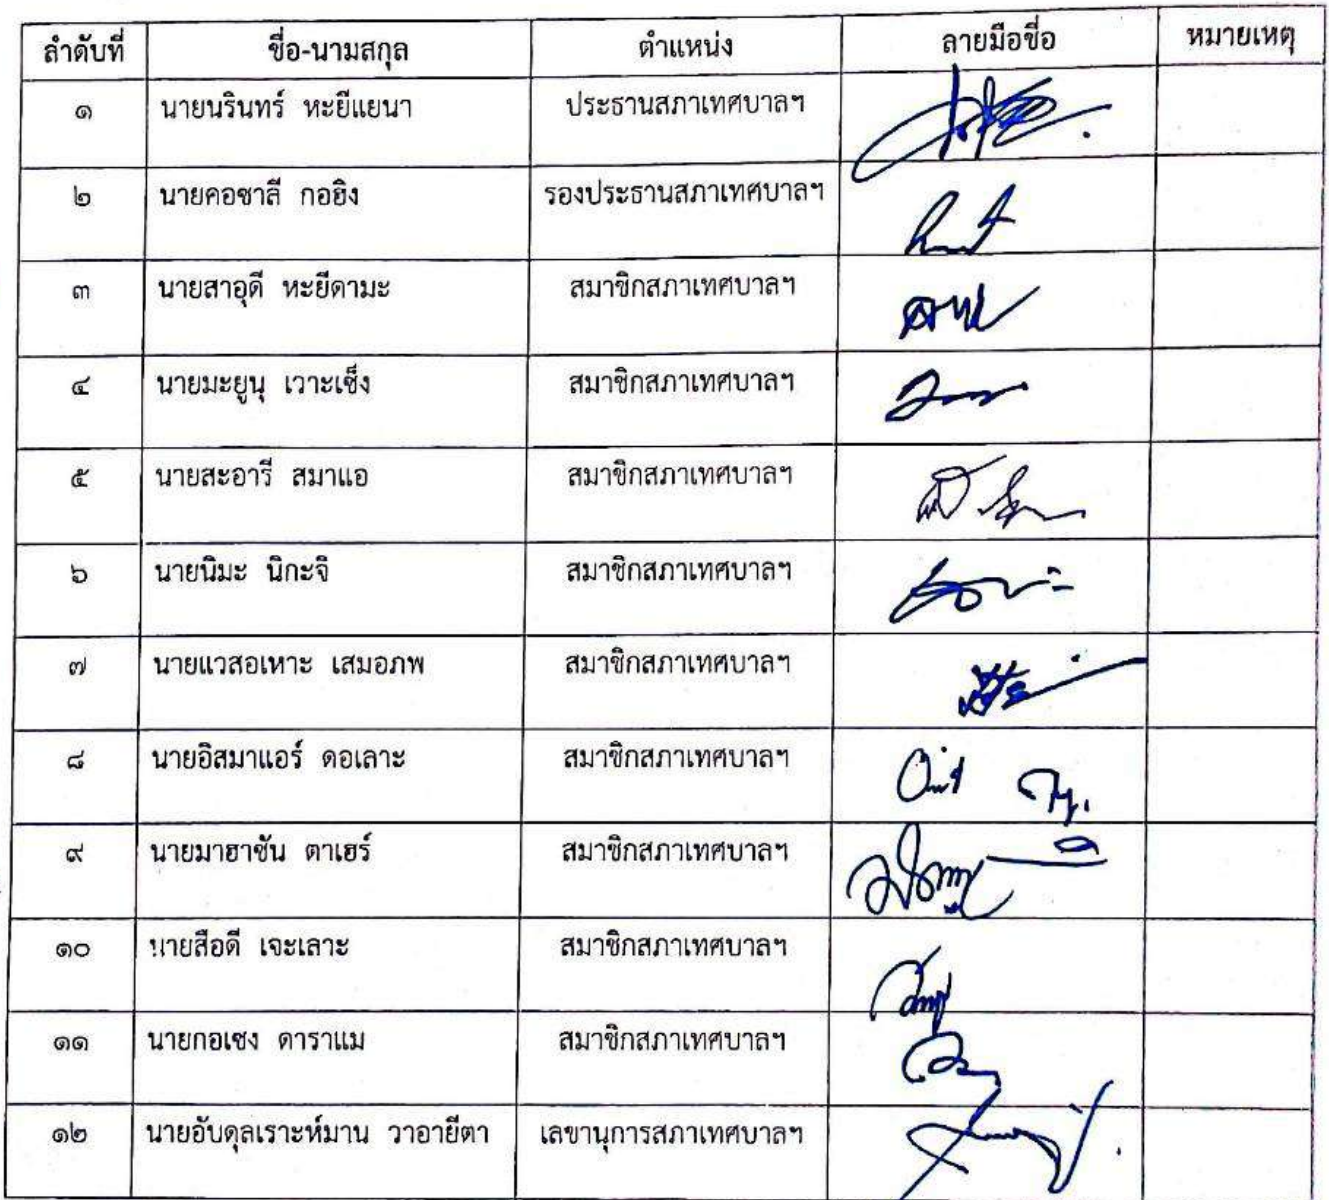 ลำดับที่ ชื่อ-นามสกุล ตำแหน่ง ลายมือชื่อ หมายเหตุ
๑ นายนรินทร์ หะยีแยนา ประธานสภาเทศบาลฯ
๒ นายคอชาลี กอฮิง รองประธานสภาเทศบาลฯ
๓ นายสาอุดี หะยีดามะ สมาชิกสภาเทศบาลฯ
๔ นายมะยูนุ เวาะเซ็ง สมาชิกสภาเทศบาลฯ
๕ นายสะอารี สมาแอ สมาชิกสภาเทศบาลฯ
๖ นายนิมะ นิกะจิ สมาชิกสภาเทศบาลฯ
๗ นายแวสอเหาะ เสมอภพ สมาชิกสภาเทศบาลฯ
๘ นายอิสมาแอร์ ดอเลาะ สมาชิกสภาเทศบาลฯ
๙ นายมาฮาซัน ตาเฮร์ สมาชิกสภาเทศบาลฯ
๑๐ นายสือดี เจะเลาะ สมาชิกสภาเทศบาลฯ
๑๑ นายกอเซง ดาราแม สมาชิกสภาเทศบาลฯ
๑๒ นายอับดุลเราะห์มาน วาอายีตา เลขานุการสภาเทศบาลฯ